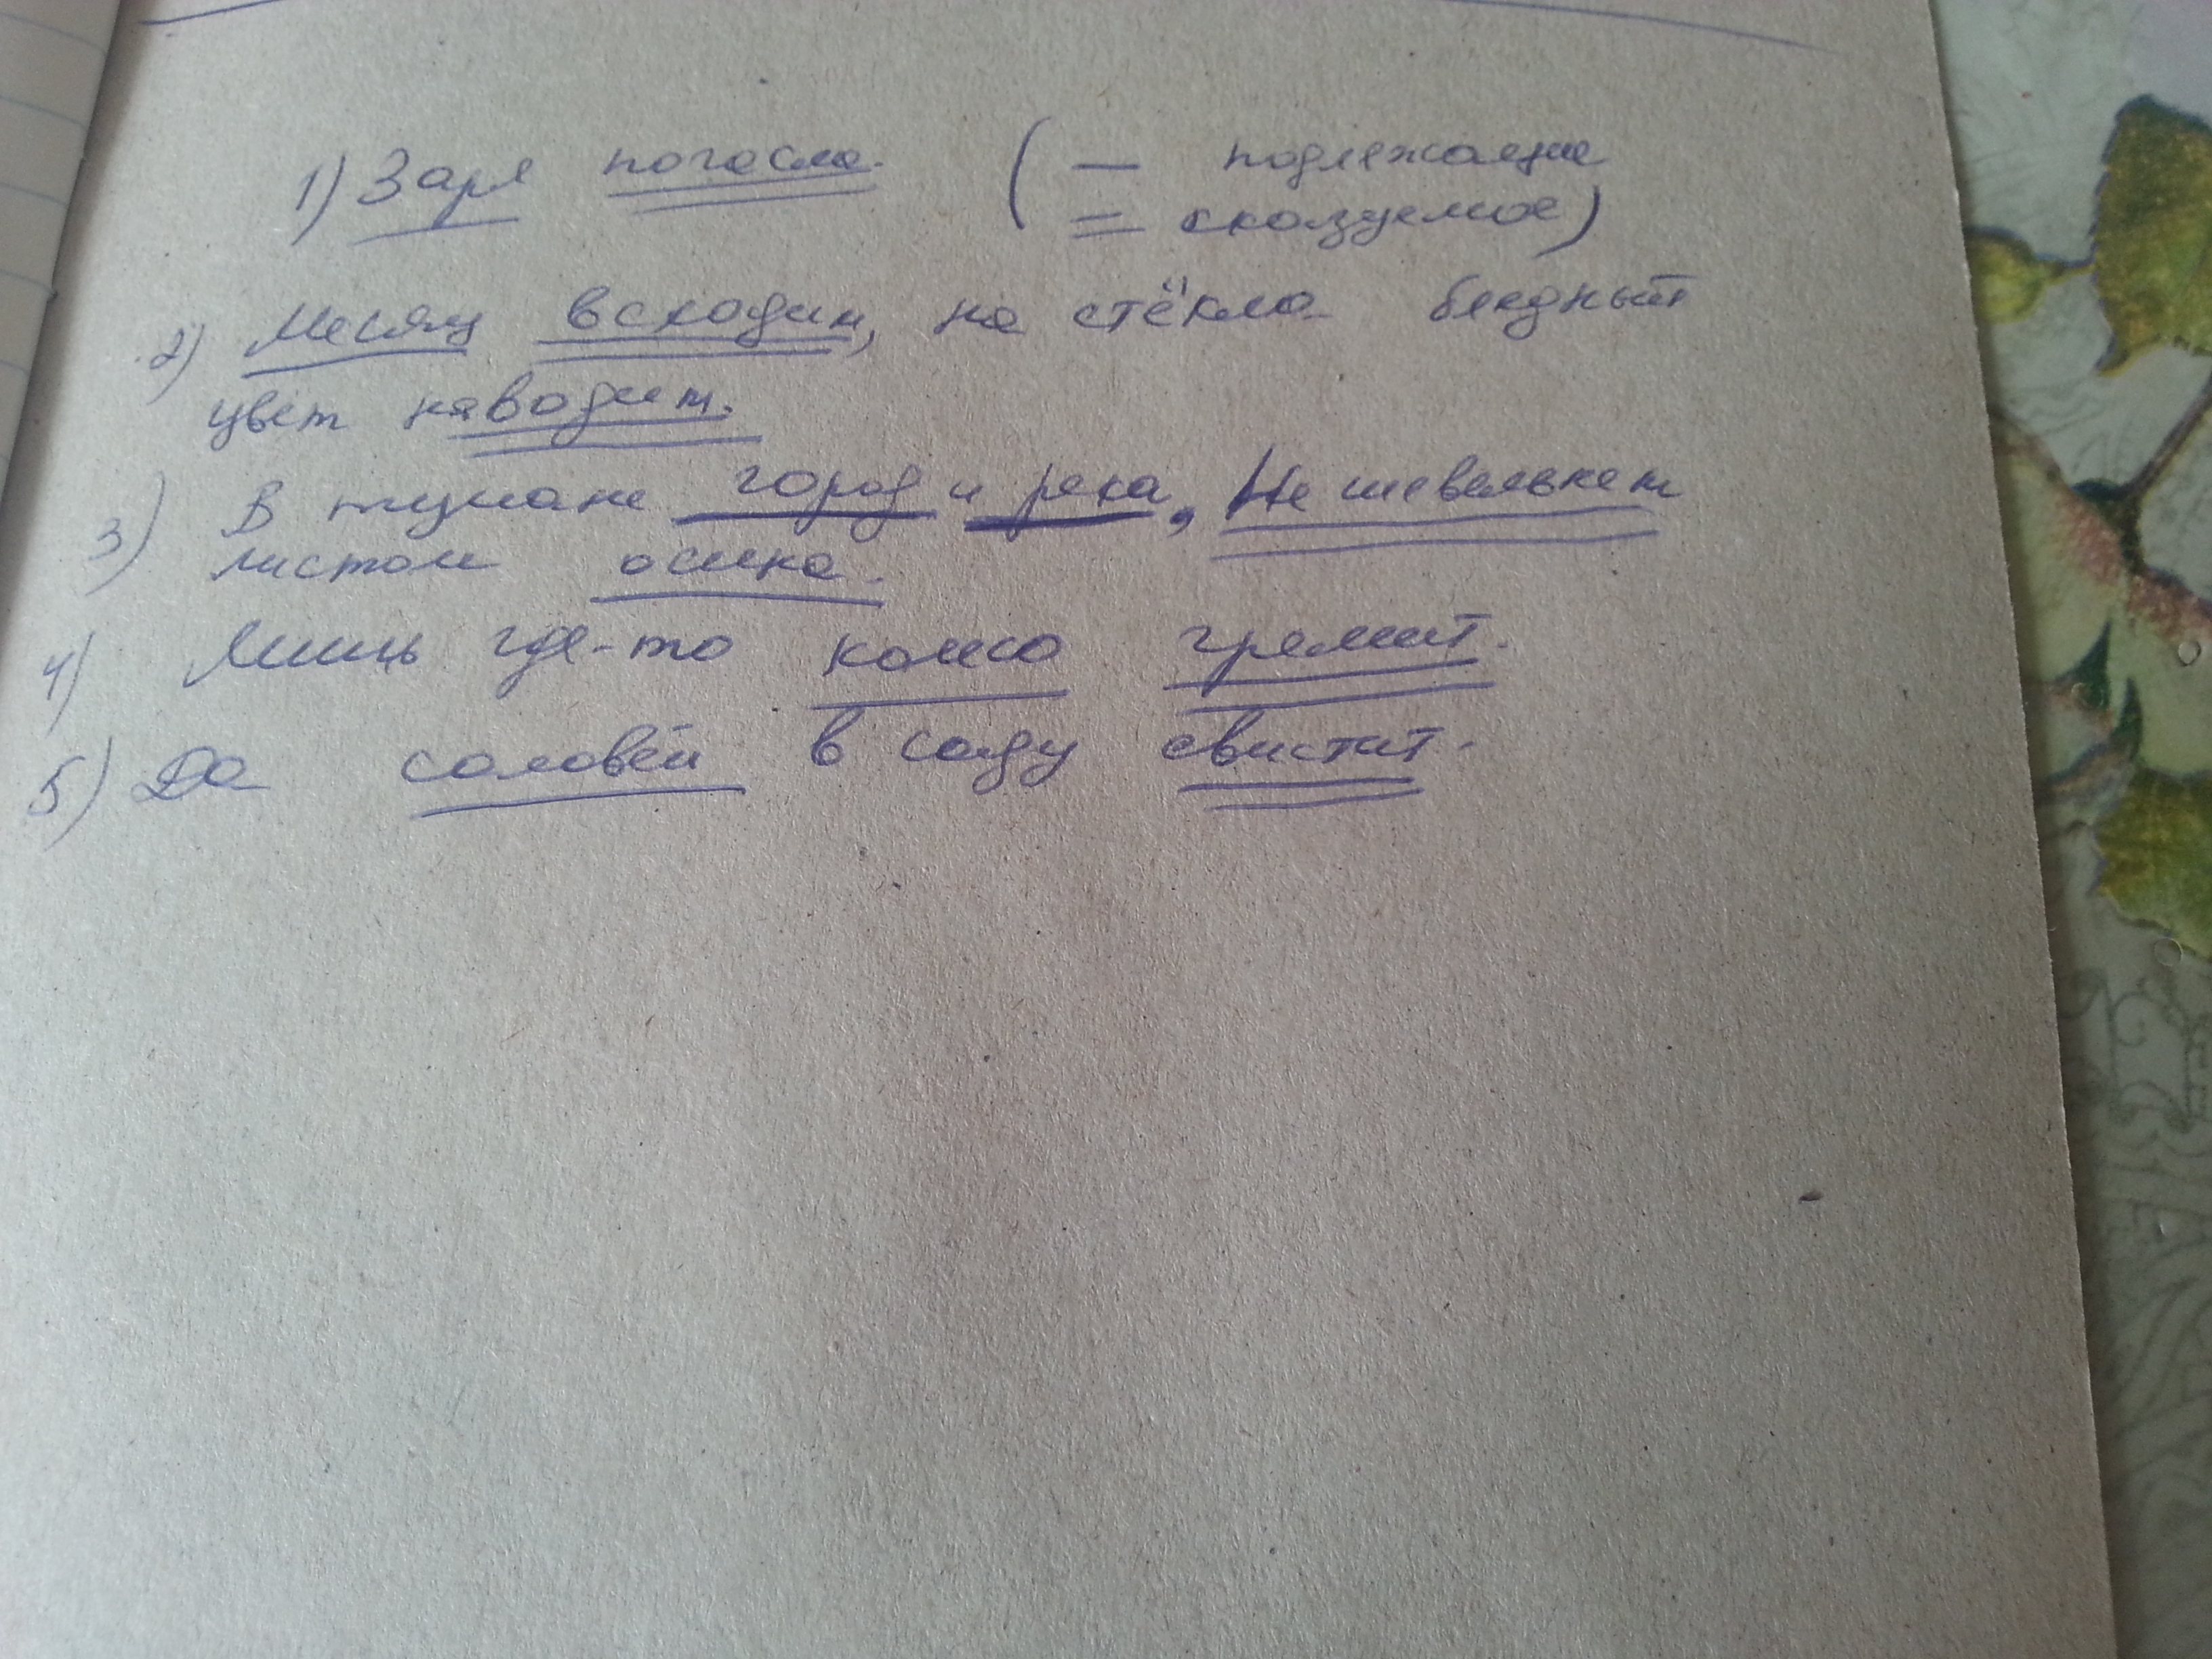 1) Заря погасла. ( — подлежащие
= сказуемое)
2) Месяц всходит, на стёкла бледный
цвет наводит.
3) В тумане город и река, Не шевельнет
листом осина.
4) Лишь где-то колесо гремит.
5) Да соловей в саду свистит.